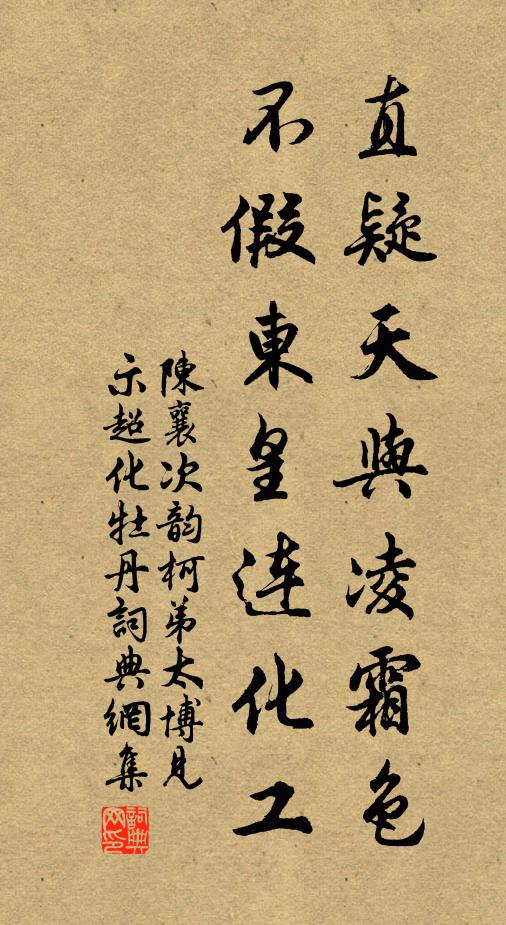 直疑天與凌霜色
不假東皇連化工
陳襄次韵柯弟太博見
示超化牡丹詞典網集
詞典网印